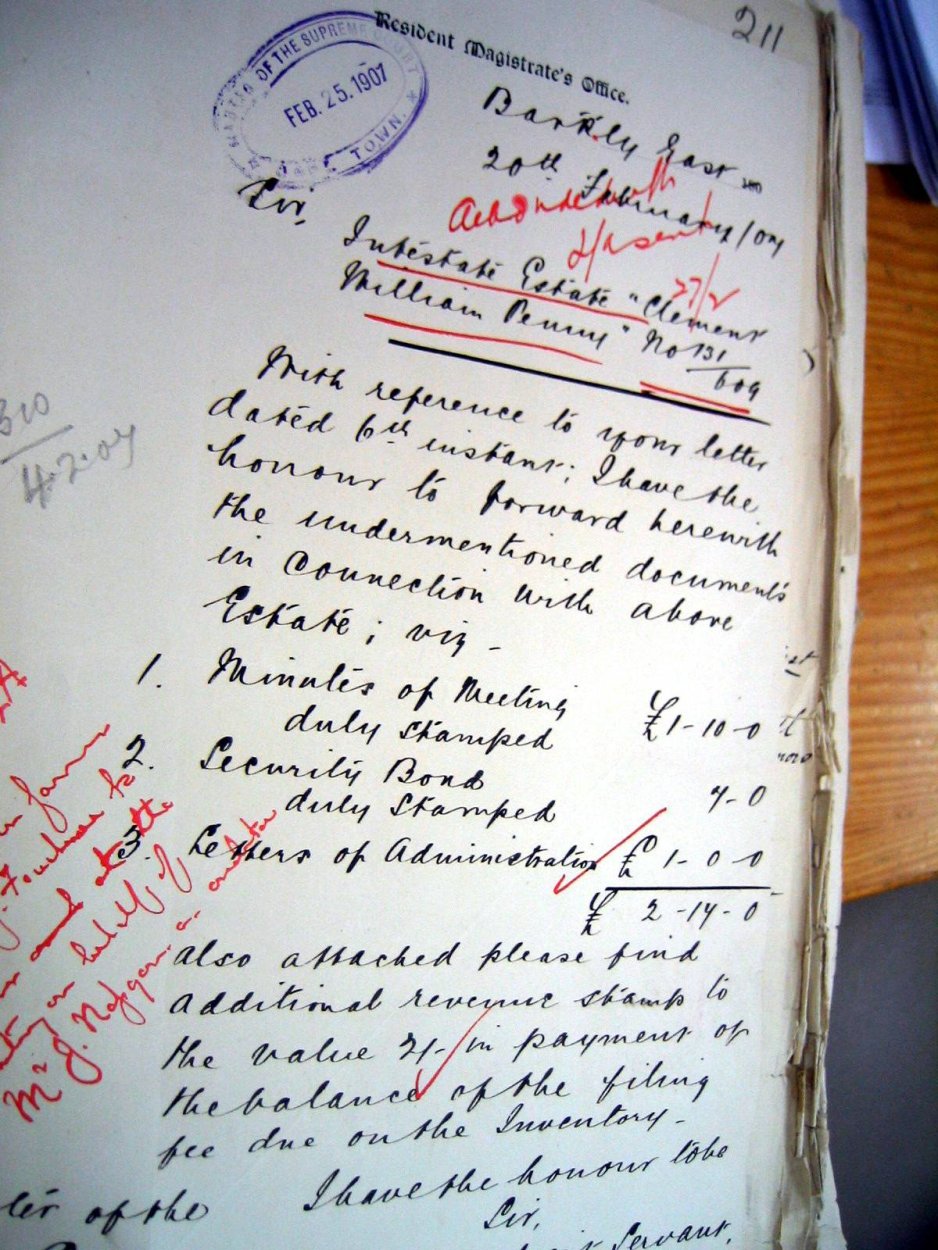 211
Resident Magistrate's Office.
MASTER OF THE SUPREME COURT
FEB. 25. 1907
TOWN.
Barkly East
20th February/07
Sir,
27/2
Intestate Estate "Clement
William Penny" No 131/609
310
4.2.07
With reference to your letter
dated 6th instant; I have the
honour to forward herewith
the undermentioned documents
in connection with above
Estate; viz -
1. Minutes of Meeting
duly stamped £1-10-0
2. Security Bond
duly stamped 4-0
3. Letters of Administration £ 1-0-0
£ 2-14-0
also attached please find
additional revenue stamp to
the value 2/- in payment of
the balance of the filing
fee due on the Inventory -
I have the honour to be
Sir,
Servant,
of the
on behalf of